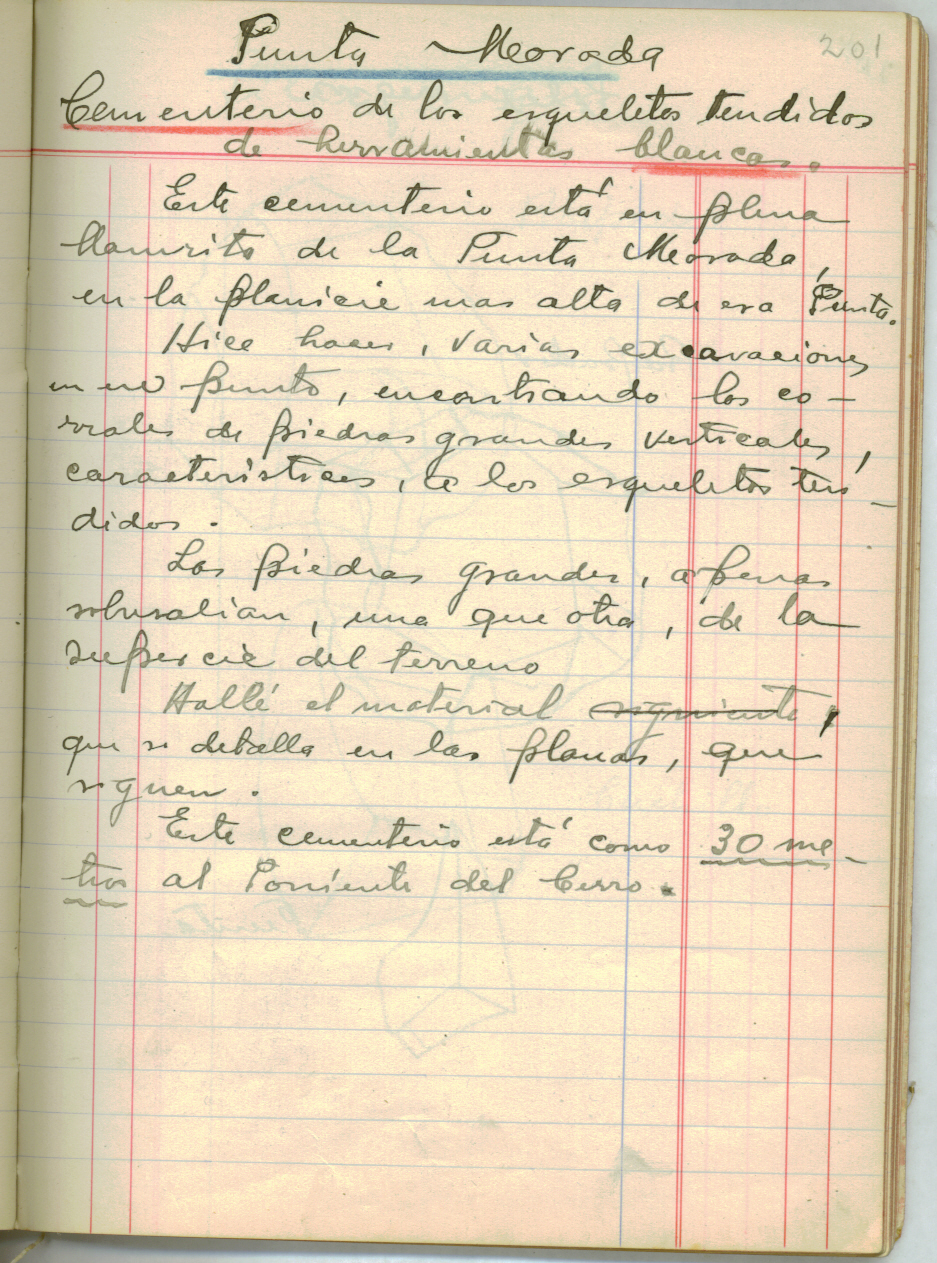 201
Punta Morada
Cementerio de los esqueletos tendidos
de herramientas blancas.
Este cementerio está en plena
llanurita de la Punta Morada,
en la planicie mas alta de esa Punta.
Hice hacer, varias excavaciones
en ese punto, encontrando los co-
rrales de piedras grandes verticales,
caracteristicos, de los esqueletos ten-
didos.
Las piedras grandes, apenas
sobresalian, una que otra, de la
superficie del terreno
Hallé el material siguiente,
que se detalla en las planas, que
siguen.
Este cementerio está como 30 me-
tros al Poniente del Cerro.